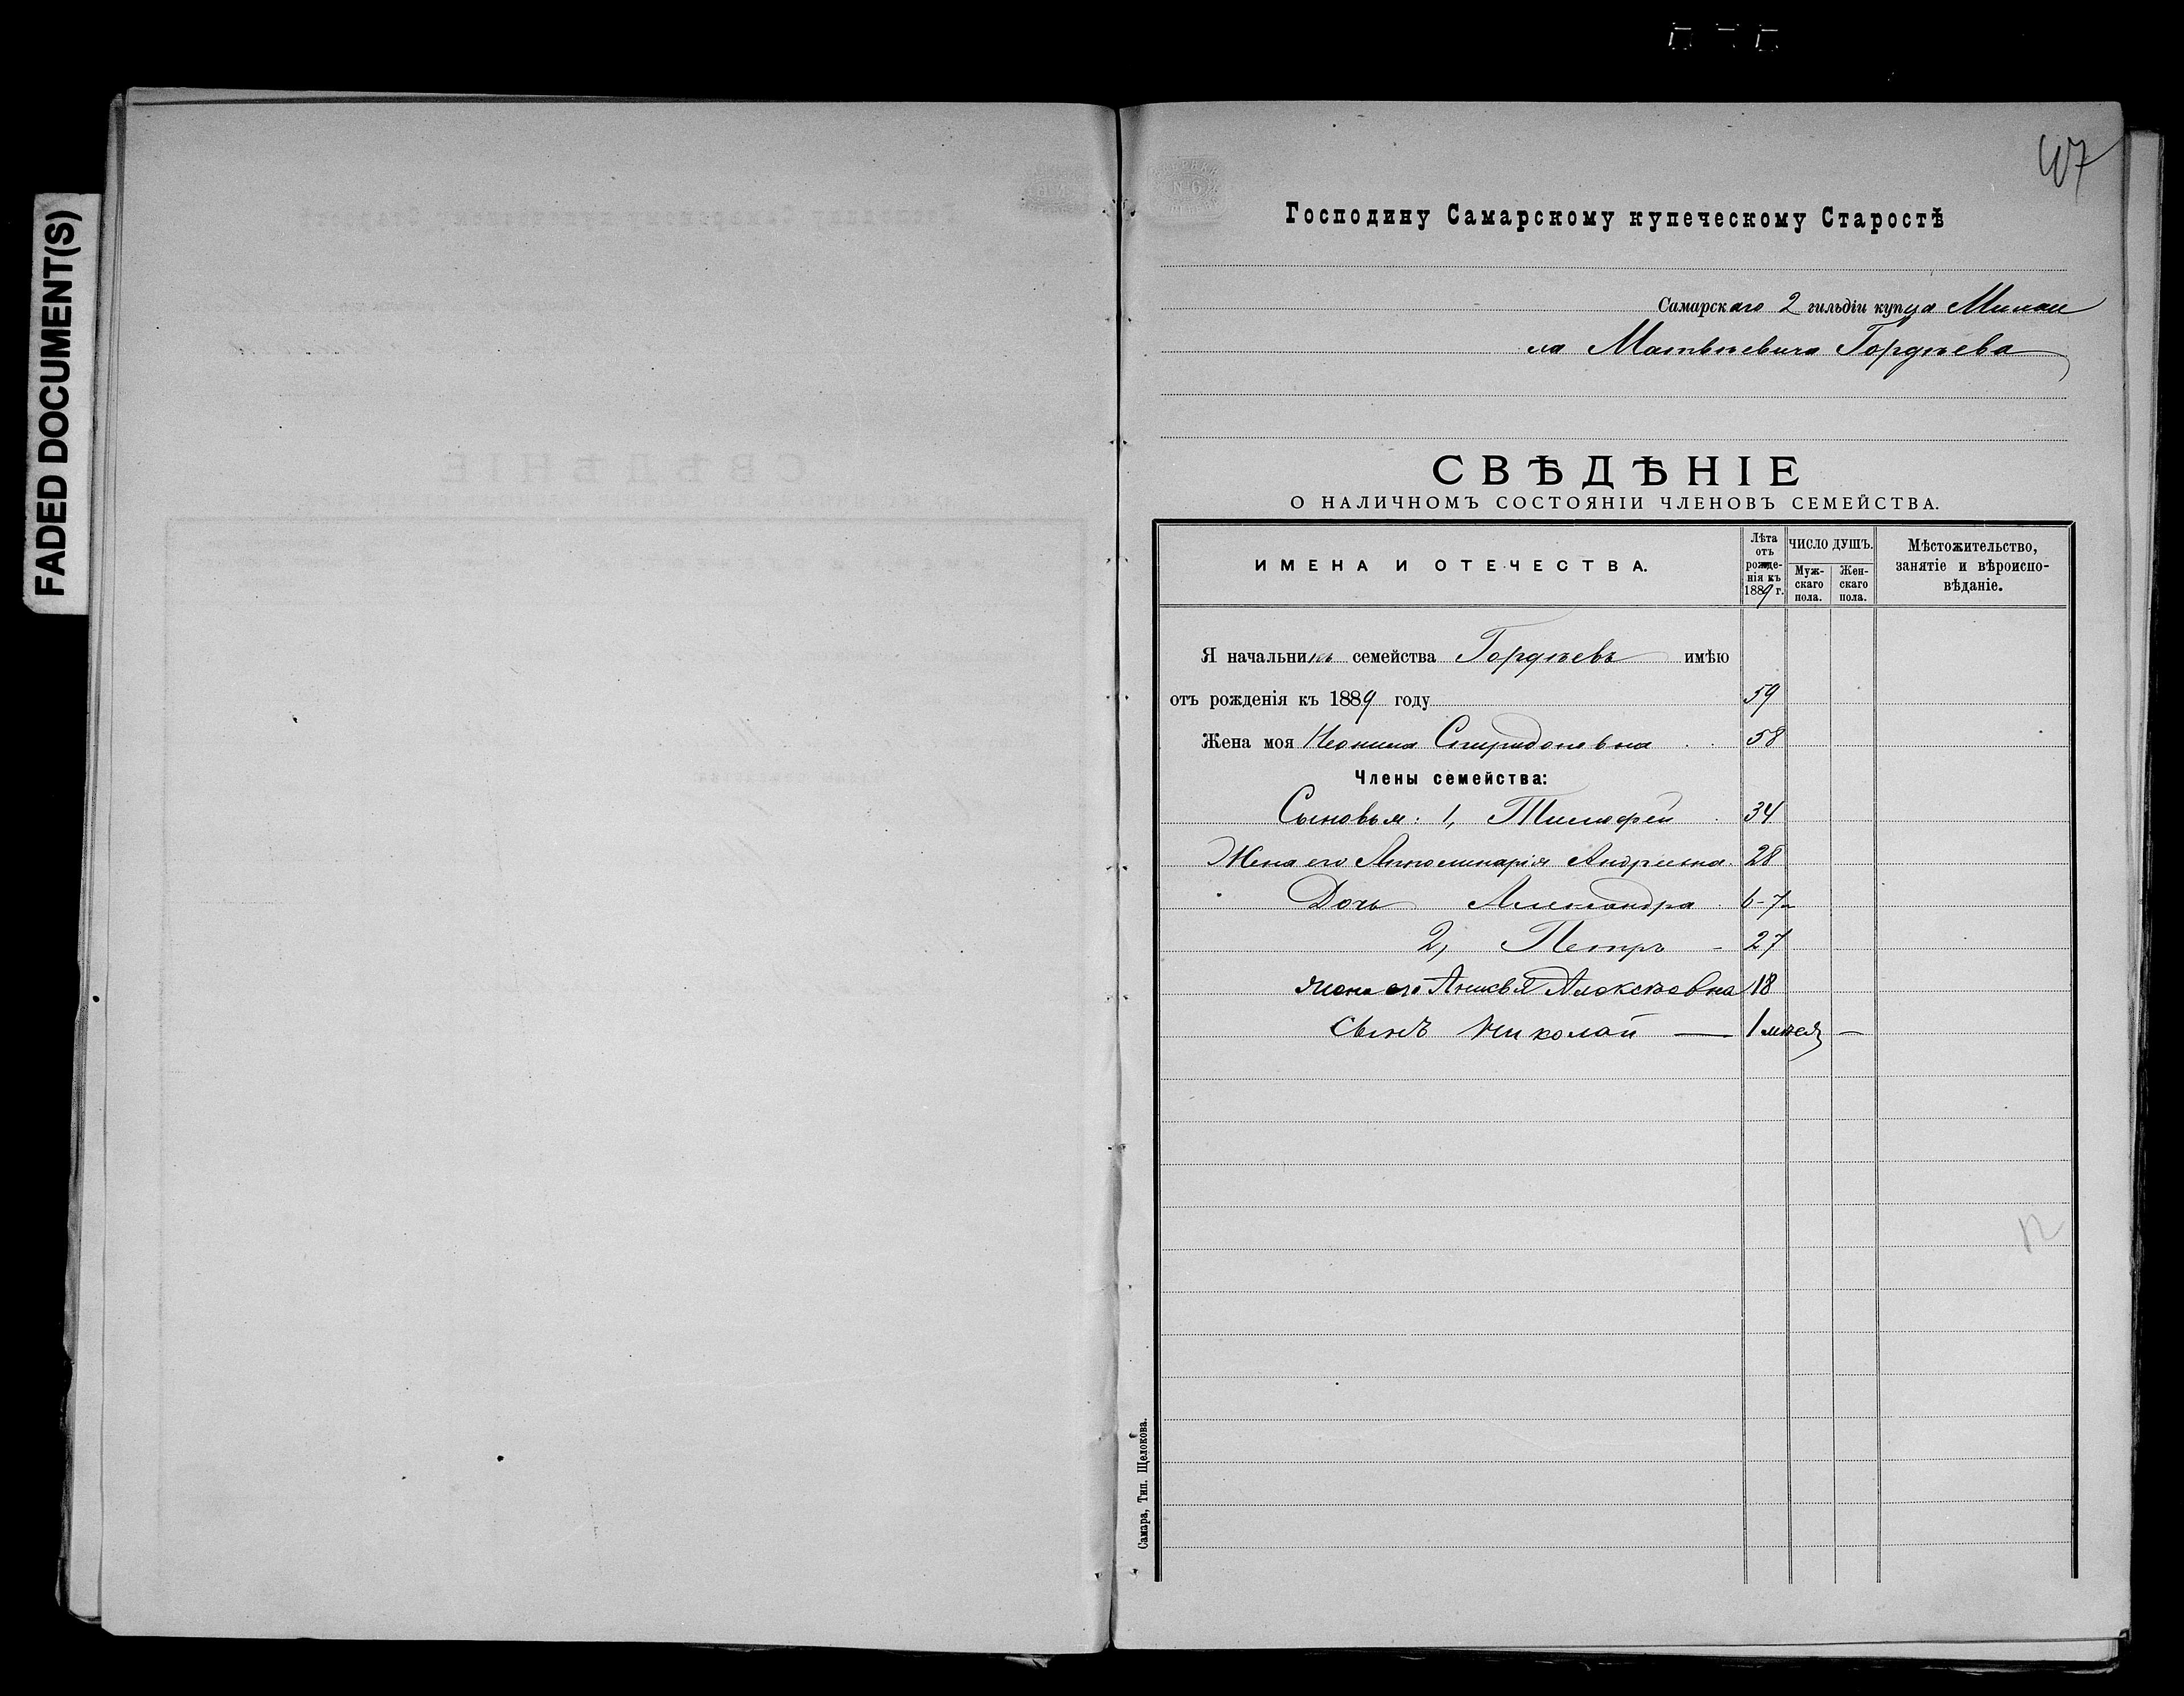 FADED DOCUMENT(S)
Господину Самарскому купеческому Старостѣ
Самарскаго 2 гильдіи купца Михаи
ла Матвѣевича Гордѣева
СВѢДѢНІЕ
О НАЛИЧНОМЪ СОСТОЯНІИ ЧЛЕНОВЪ СЕМЕЙСТВА.
ИМЕНА И ОТЕЧЕСТВА.
Лѣта отъ рожде-нія къ 1889 г.
ЧИСЛО ДУШЪ.
Муж-скаго пола.
Жен-скаго пола.
Мѣстожительство, занятіе и вѣроиспо-вѣданіе.
Я начальникъ семейства Гордѣевъ имѣю
отъ рожденія къ 1889 году 59
Жена моя Неонила Спиридоновна 58
Члены семейства:
Сыновья: 1, Тимофей 34
Жена его Апполинарія Андреевна 28
Дочь Александра 6-7
2, Петръ - 27
жена его Алексѣевна 18
Сынъ Николай — 1 мѣсяц —
Самара, Тип. Щелокова.